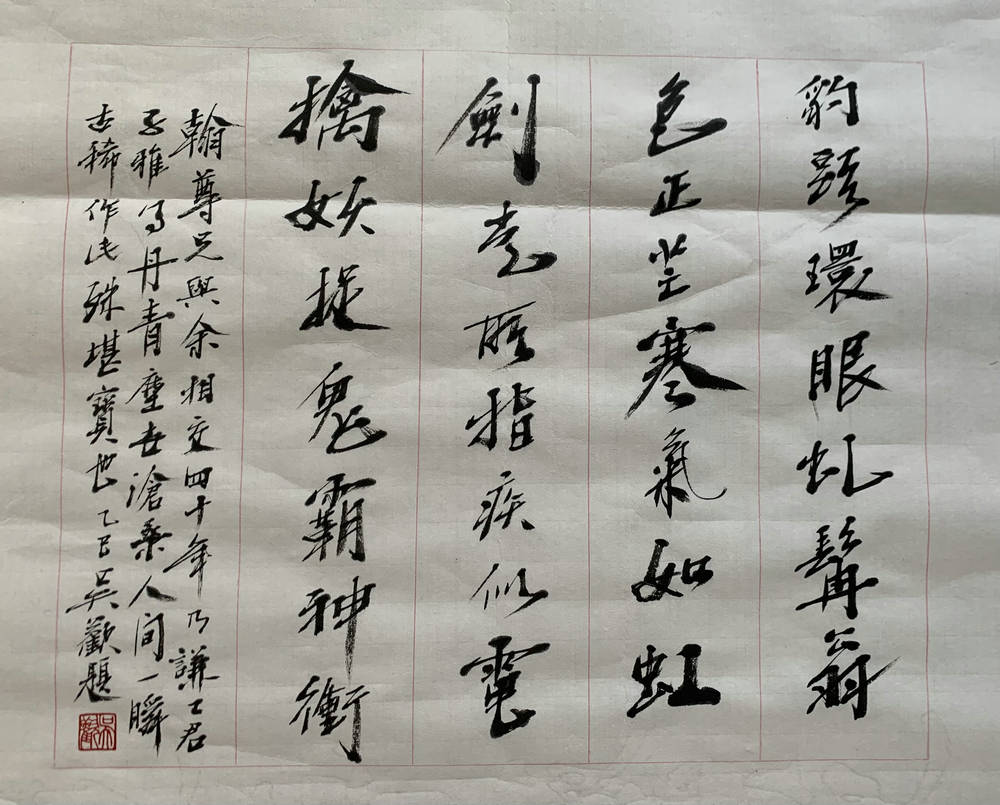 豹頭環眼虬髯翁
色正芒寒氣如虹
劍所指疾似電
擒妖捉鬼霸神衝
翰尊兄與余相交四十年乃謙々君
子雅写丹青塵世滄桑人間一瞬
古稀作此殊堪寶也乙巳吳歡題
吳歡